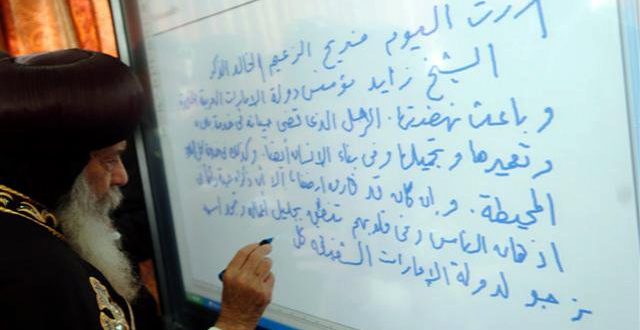 زرت اليوم ضريح الزعيم الخالد الذكر
الشيخ زايد مؤسس دولة الإمارات العربية
و باعث نهضتها. الرجل الذى قضى حياته فى خدمة
و تعميرها و تجميلها وفى بناء الانسان أيضا. وكذلك فى
المحيطة. و إن كان قد فارق أرضنا، إلا أن ذكراه
اذهان الناس وفى قلوبهم تنطق بجليل اعماله و
نرجو لدولة الإمارات الشقيقة كل